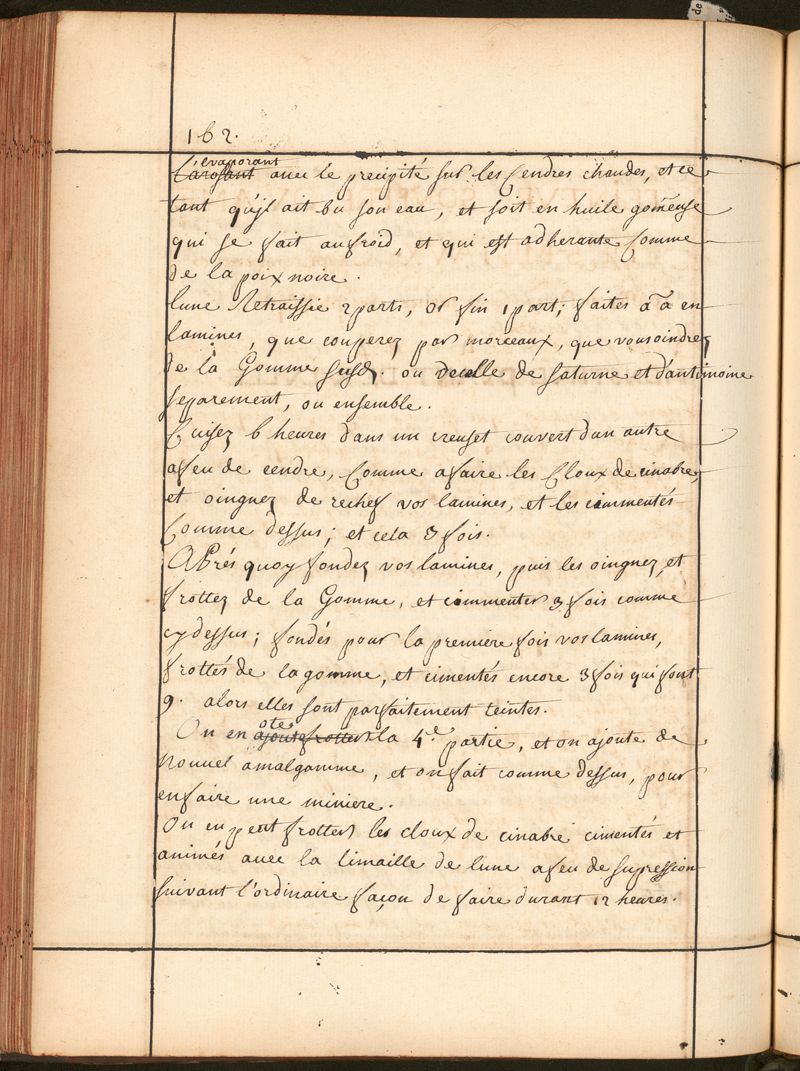 162.
evaporant
l'arosant avec le precipité sur les Cendres chaudes, et ce
tant qu'jl ait bu son eau, et soit en huile gom̃euse
qui se fait au froid, et qui est adherante Comme
de la poix noire.
lune Retraissie 2 parts, or fin 1 part; faites ã ã en
lamines, que couperez par morceaux, que vous oindrez
de la Gomme susd. ou decelle de saturne et d'antimoine
separement, ou ensemble.
Cuisez 6 heures dans un creuset couvert dun autre
a feu de cendre, Comme a faire les Cloux de cinabre,
et oingnez de rechef vos lamines, et les cimmentés
Comme dessus; et cela 3 fois.
APrés quoy fondez vos lamines, puis les oingnez et
frottez de la Gomme, et cimmenter 3 fois comme
cy dessus; fondés pour la premiere fois vos lamines,
frottés de la gomme, et cimentés encore 3 fois qui font
9. alors elles sont parfaitement teintes.
ote
On en ajoute frotter la 4.e partie, et on ajoute de
nouvel amalgamme, et on fait comme dessus, pour
en faire une miniere.
On en peut frotter les cloux de cinabre cimentés et
animés avec la limaille de lune a feu de supression
suivant l'ordinaire façon de faire durant 12 heures.
de